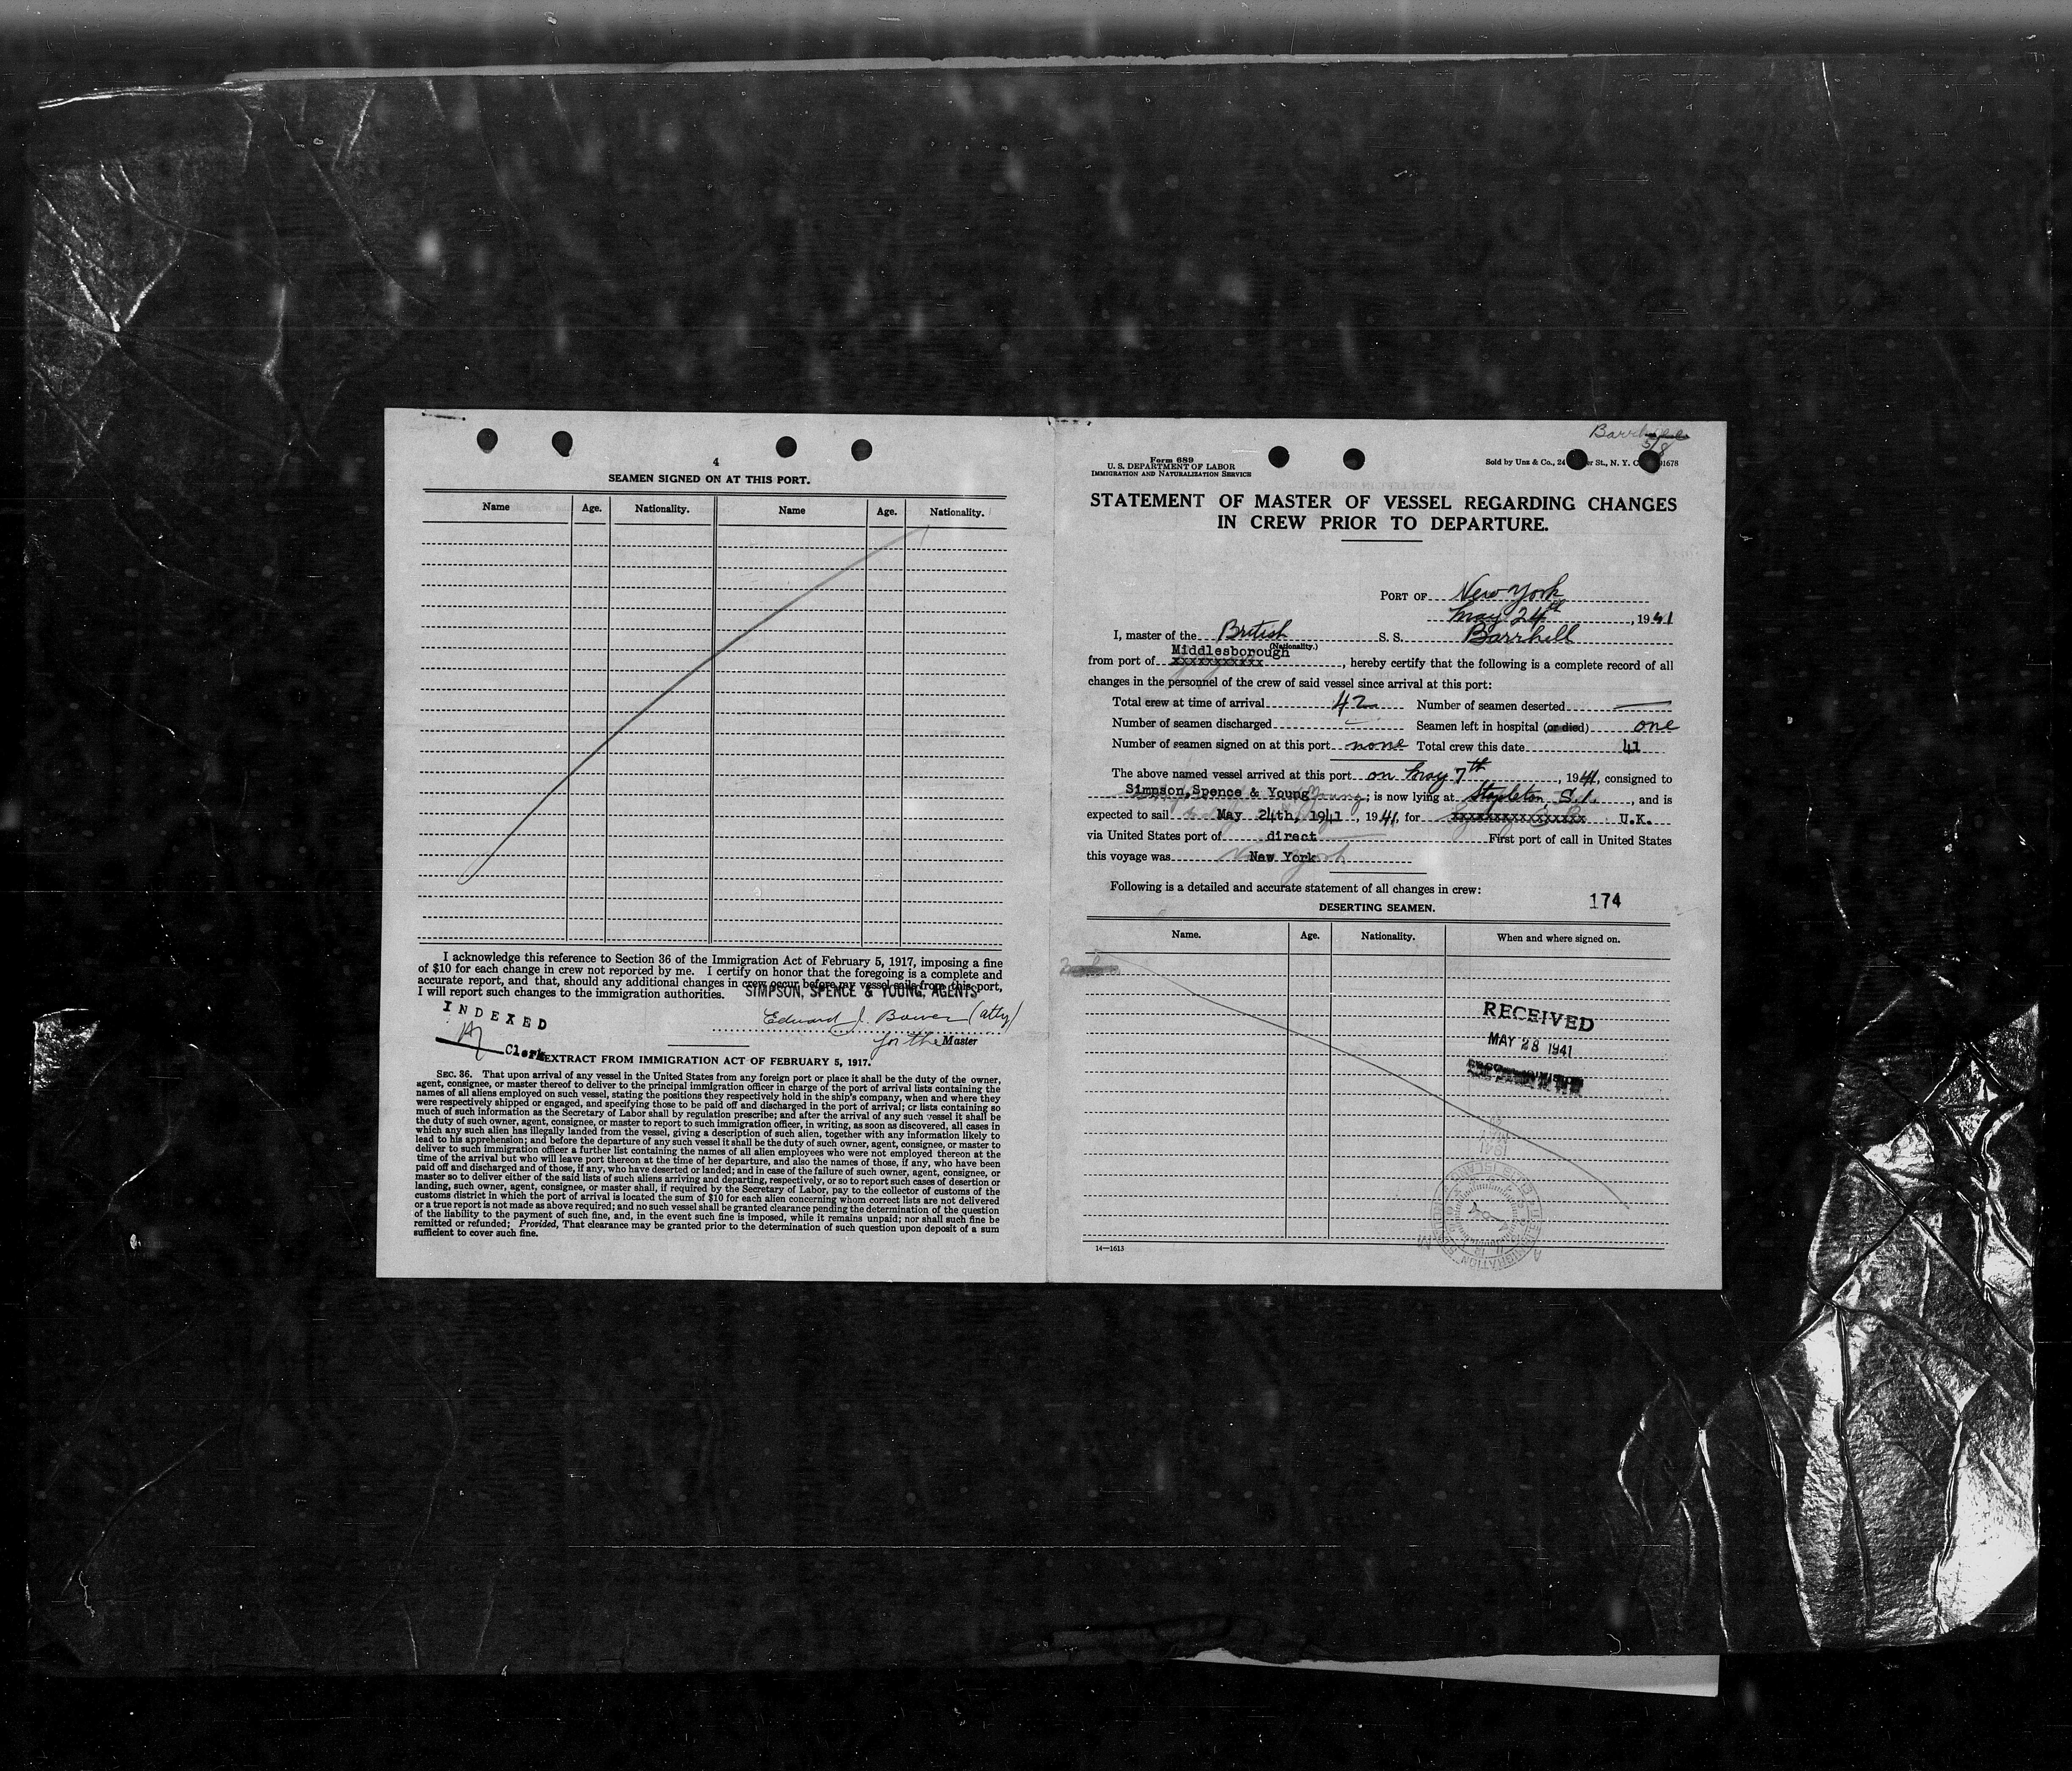 4
SEAMEN SIGNED ON AT THIS PORT.
Name Age. Nationality. Name Age. Nationality.
I acknowledge this reference to Section 36 of the Immigration Act of February 5, 1917, imposing a fine
of $10 for each change in crew not reported by me. I certify on honor that the foregoing is a complete and
accurate report, and that, should any additional changes in crew occur before my vessel sails from this port,
I will report such changes to the immigration authorities. SIMPSON, SPENCE & YOUNG, AGENTS
INDEXED
Edward J. Bower (atty)
for the Master
Clerk
EXTRACT FROM IMMIGRATION ACT OF FEBRUARY 5, 1917.
SEC. 36. That upon arrival of any vessel in the United States from any foreign port or place it shall be the duty of the owner,
agent, consignee, or master thereof to deliver to the principal immigration officer in charge of the port of arrival lists containing the
names of all aliens employed on such vessel, stating the positions they respectively hold in the ship's company, when and where they
were respectively shipped or engaged, and specifying those to be paid off and discharged in the port of arrival; or lists containing so
much of such information as the Secretary of Labor shall by regulation prescribe; and after the arrival of any such vessel it shall be
the duty of such owner, agent, consignee, or master to report to such immigration officer, in writing, as soon as discovered, all cases in
which any such alien has illegally landed from the vessel, giving a description of such alien, together with any information likely to
lead to his apprehension; and before the departure of any such vessel it shall be the duty of such owner, agent, consignee, or master to
deliver to such immigration officer a further list containing the names of all alien employees who were not employed thereon at the
time of the arrival but who will leave port thereon at the time of her departure, and also the names of those, if any, who have been
paid off and discharged and of those, if any, who have deserted or landed; and in case of the failure of such owner, agent, consignee, or
master so to deliver either of the said lists of such aliens arriving and departing, respectively, or so to report such cases of desertion or
landing, such owner, agent, consignee, or master shall, if required by the Secretary of Labor, pay to the collector of customs of the
customs district in which the port of arrival is located the sum of $10 for each alien concerning whom correct lists are not delivered
or a true report is not made as above required; and no such vessel shall be granted clearance pending the determination of the question
of the liability to the payment of such fine, and, in the event such fine is imposed, while it remains unpaid; nor shall such fine be
remitted or refunded; Provided, That clearance may be granted prior to the determination of such question upon deposit of a sum
sufficient to cover such fine.
Barrhill
5/8
Form 689
U. S. DEPARTMENT OF LABOR
IMMIGRATION AND NATURALIZATION SERVICE
Sold by Unz & Co., 24 St., N. Y. C. 91678
STATEMENT OF MASTER OF VESSEL REGARDING CHANGES
IN CREW PRIOR TO DEPARTURE.
PORT OF New York
May 24th, 1941
I, master of the British S. S. Barrhill
(Nationality.)
Middlesborough
from port of xxxxxxxxxxx, hereby certify that the following is a complete record of all
changes in the personnel of the crew of said vessel since arrival at this port:
Total crew at time of arrival 42 Number of seamen deserted —
Number of seamen discharged — Seamen left in hospital (or died) one
Number of seamen signed on at this port none Total crew this date 41
The above named vessel arrived at this port on May 7th, 1941, consigned to
Simpson, Spence & Young; is now lying at Stapleton, S.I., and is
expected to sail May 24th, 1941, 1941, for xxxxxxxxxxxxxxxx U.K.
via United States port of direct First port of call in United States
this voyage was New York
Following is a detailed and accurate statement of all changes in crew:
174
DESERTING SEAMEN.
Name. Age. Nationality. When and where signed on.
RECEIVED
MAY 28 1941
14—1613